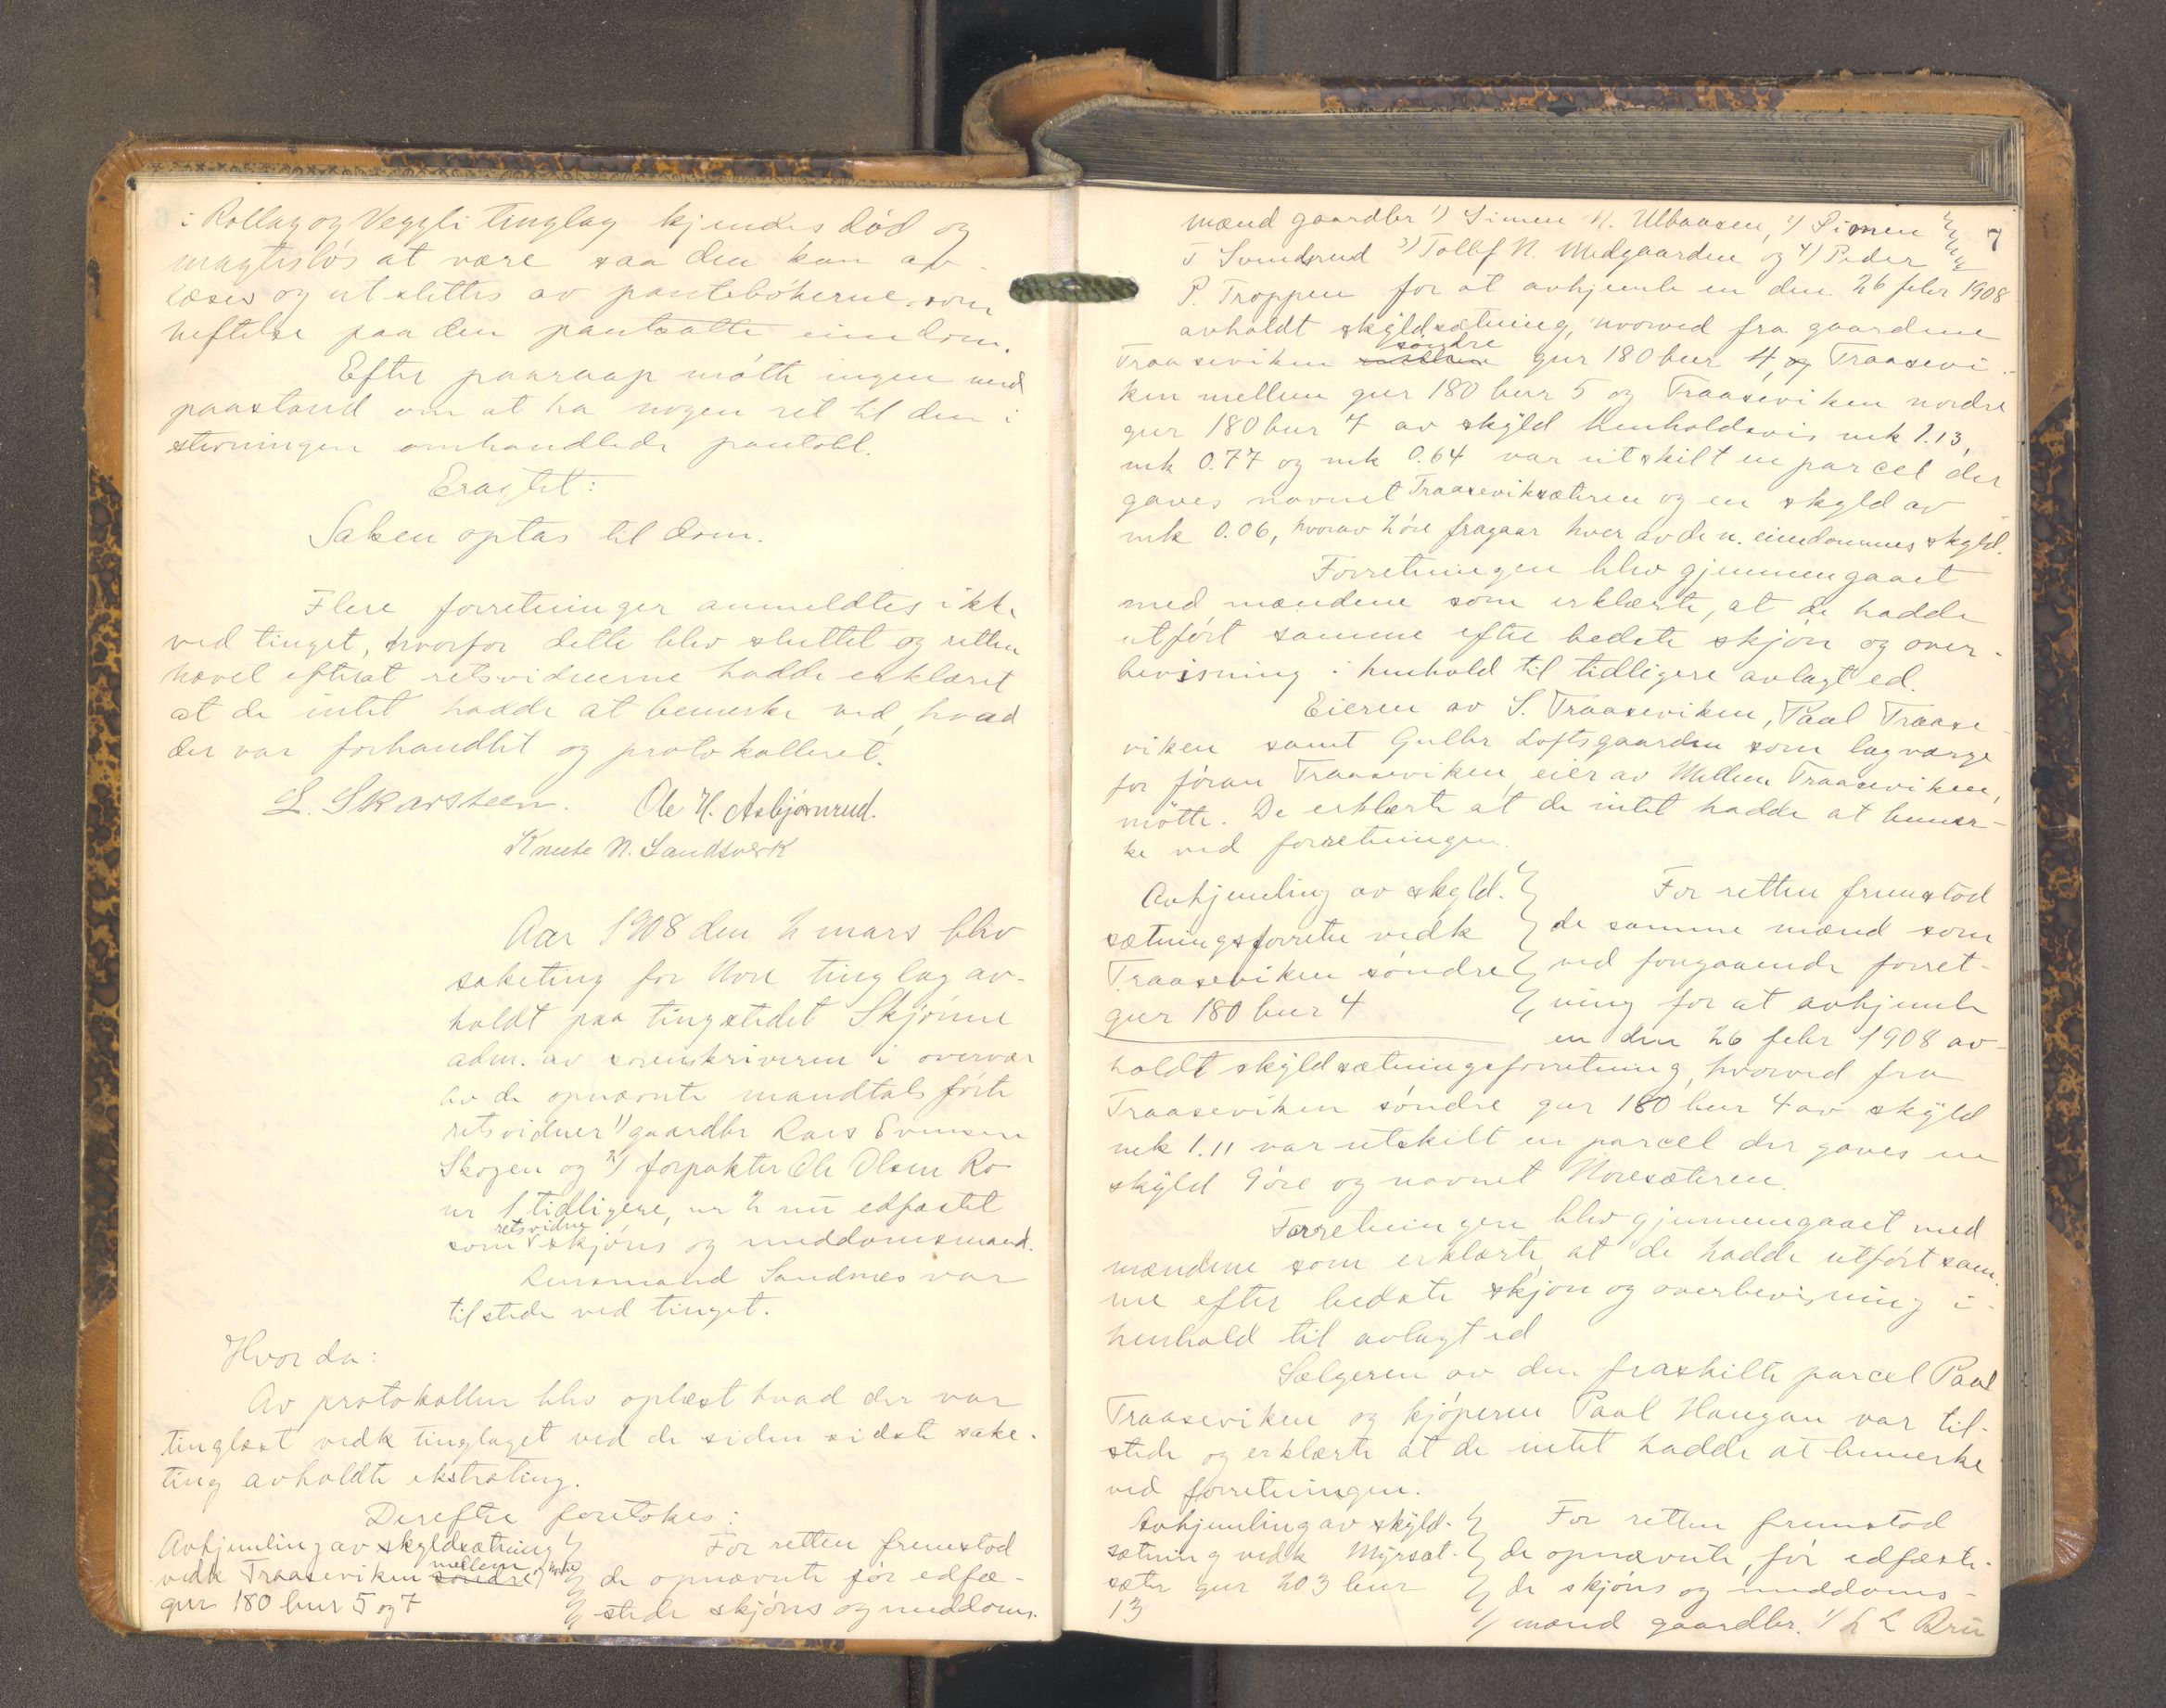 i Rollag og Veggli tinglag kjendes död og
magteslös at være saa den kan av-
læses og utslettes av pantebökerne som
heftelse paa den pantsatte eiendom.
Efter paaraap mötte ingen med
paastand om at ha nogen ret til den i
stevningen omhandlede pantobl.
Eragtet:
Saken optas til dom.
Flere forretninger anmeldtes ikke
ved tinget, hvorfor dette blev sluttet og retten
hævet efterat retsvidnerne hadde erklæret
at de intet hadde at bemerke ved, hvad
der var forhandlet og protokolleret.
L. Skarsteen. Ole H. Asbjørnrud.
Knute N. Landsverk
Aar 1908 den 2 mars blev
saketing for Nore tinglag av-
holdt paa tingstedet Skjönne
adm. av sorenskriveren i overvær
av de opnævnte mandtalsförte
retsvidner 1) gaardbr Lars Evensen
Skogen og 2) forpakter Ole Olsen Ro
nr 1 tidligere, nr 2 nu edfæstet
retsvidne
som skjöns og meddomsmænd.
Lensmand Sandnes var
tilstede ved tinget.
Hvorda:
Av protokollen blev oplæst hvad der var
tinglæst vedk tinglaget ved de siden sidste sake-
ting avholdte ekstrating.
Derefter foretokes:
Avhjemling av skyldsætning
vedk Traaseviken söndre mellem og nordre
gnr 180 bnr 5 og 7
For retten fremstod
de opnævnte för edfæ-
stede skjöns og meddoms-
7
mænd gaardbr 1) Simen N. Ulbaasen, 2) Simen
T Svendsrud 3) Tollef N. Medgaarden og 4) Peder
P. Troppen for at avhjemle en den 26 febr 1908
avholdt skyldsætning, hvorved fra gaardene
söndre
Traaseviken mellem gnr 180 bnr 4, og Traasevi-
ken mellem gnr 180 bnr 5 og Traaseviken nordre
gnr 180 bnr 7 av skyld henholdsvis mk 1.13,
mk 0.77 og mk 0.64 var utskilt en parcel der
gaves navnet Traaseviksæteren og en skyld av
mk 0.06, hvorav 2 öre fragaar hver av de n. eiendommes skyld.
Forretningen blev gjennemgaaet
med mændene som erklærte, at de hadde
utfört samme efter bedste skjön og over-
bevisning i henhold til tidligere avlagt ed.
Eieren av S. Traaseviken, Paal Traase-
viken samt Gulbr Loftsgaarden som lagværge
for Jöran Traaseviken, eier av Mellem Traaseviken,
mötte. De erklærte at de intet hadde at bemer-
ke ved forretningen.
Avhjemling av skyld-
sætningsforretn vedk
Traaseviken söndre
gnr 180 bnr 4
For retten fremstod
de samme mænd som
ved forrgaaende forret-
ning for at avhjemle
en den 26 febr 1908 av-
holdt skyldsætningsforretning, hvorved fra
Traaseviken söndre gnr 180 bnr 4 av skyld
mk 1.11 var utskilt en parcel der gaves en
skyld 9 öre og navnet Noresæteren.
Forretningen blev gjennemgaaet med
mændene som erklærte, at de hadde utfört sam-
me efter bedste skjön og overbevisning i
henhold til avlagt ed
Sælgeren av den fraskilte parcel Paal
Traaseviken og kjöperen Paal Haugan var til-
stede og erklærte at de intet hadde at bemerke
ved forretningen.
Avhjemling av skyld-
sætning vedk Myrsæt-
sæter gnr 203 bnr
13
For retten fremstod
de opnævnte, för edfæste-
de skjöns og meddoms-
mænd gaardbr. 1) L L Bru